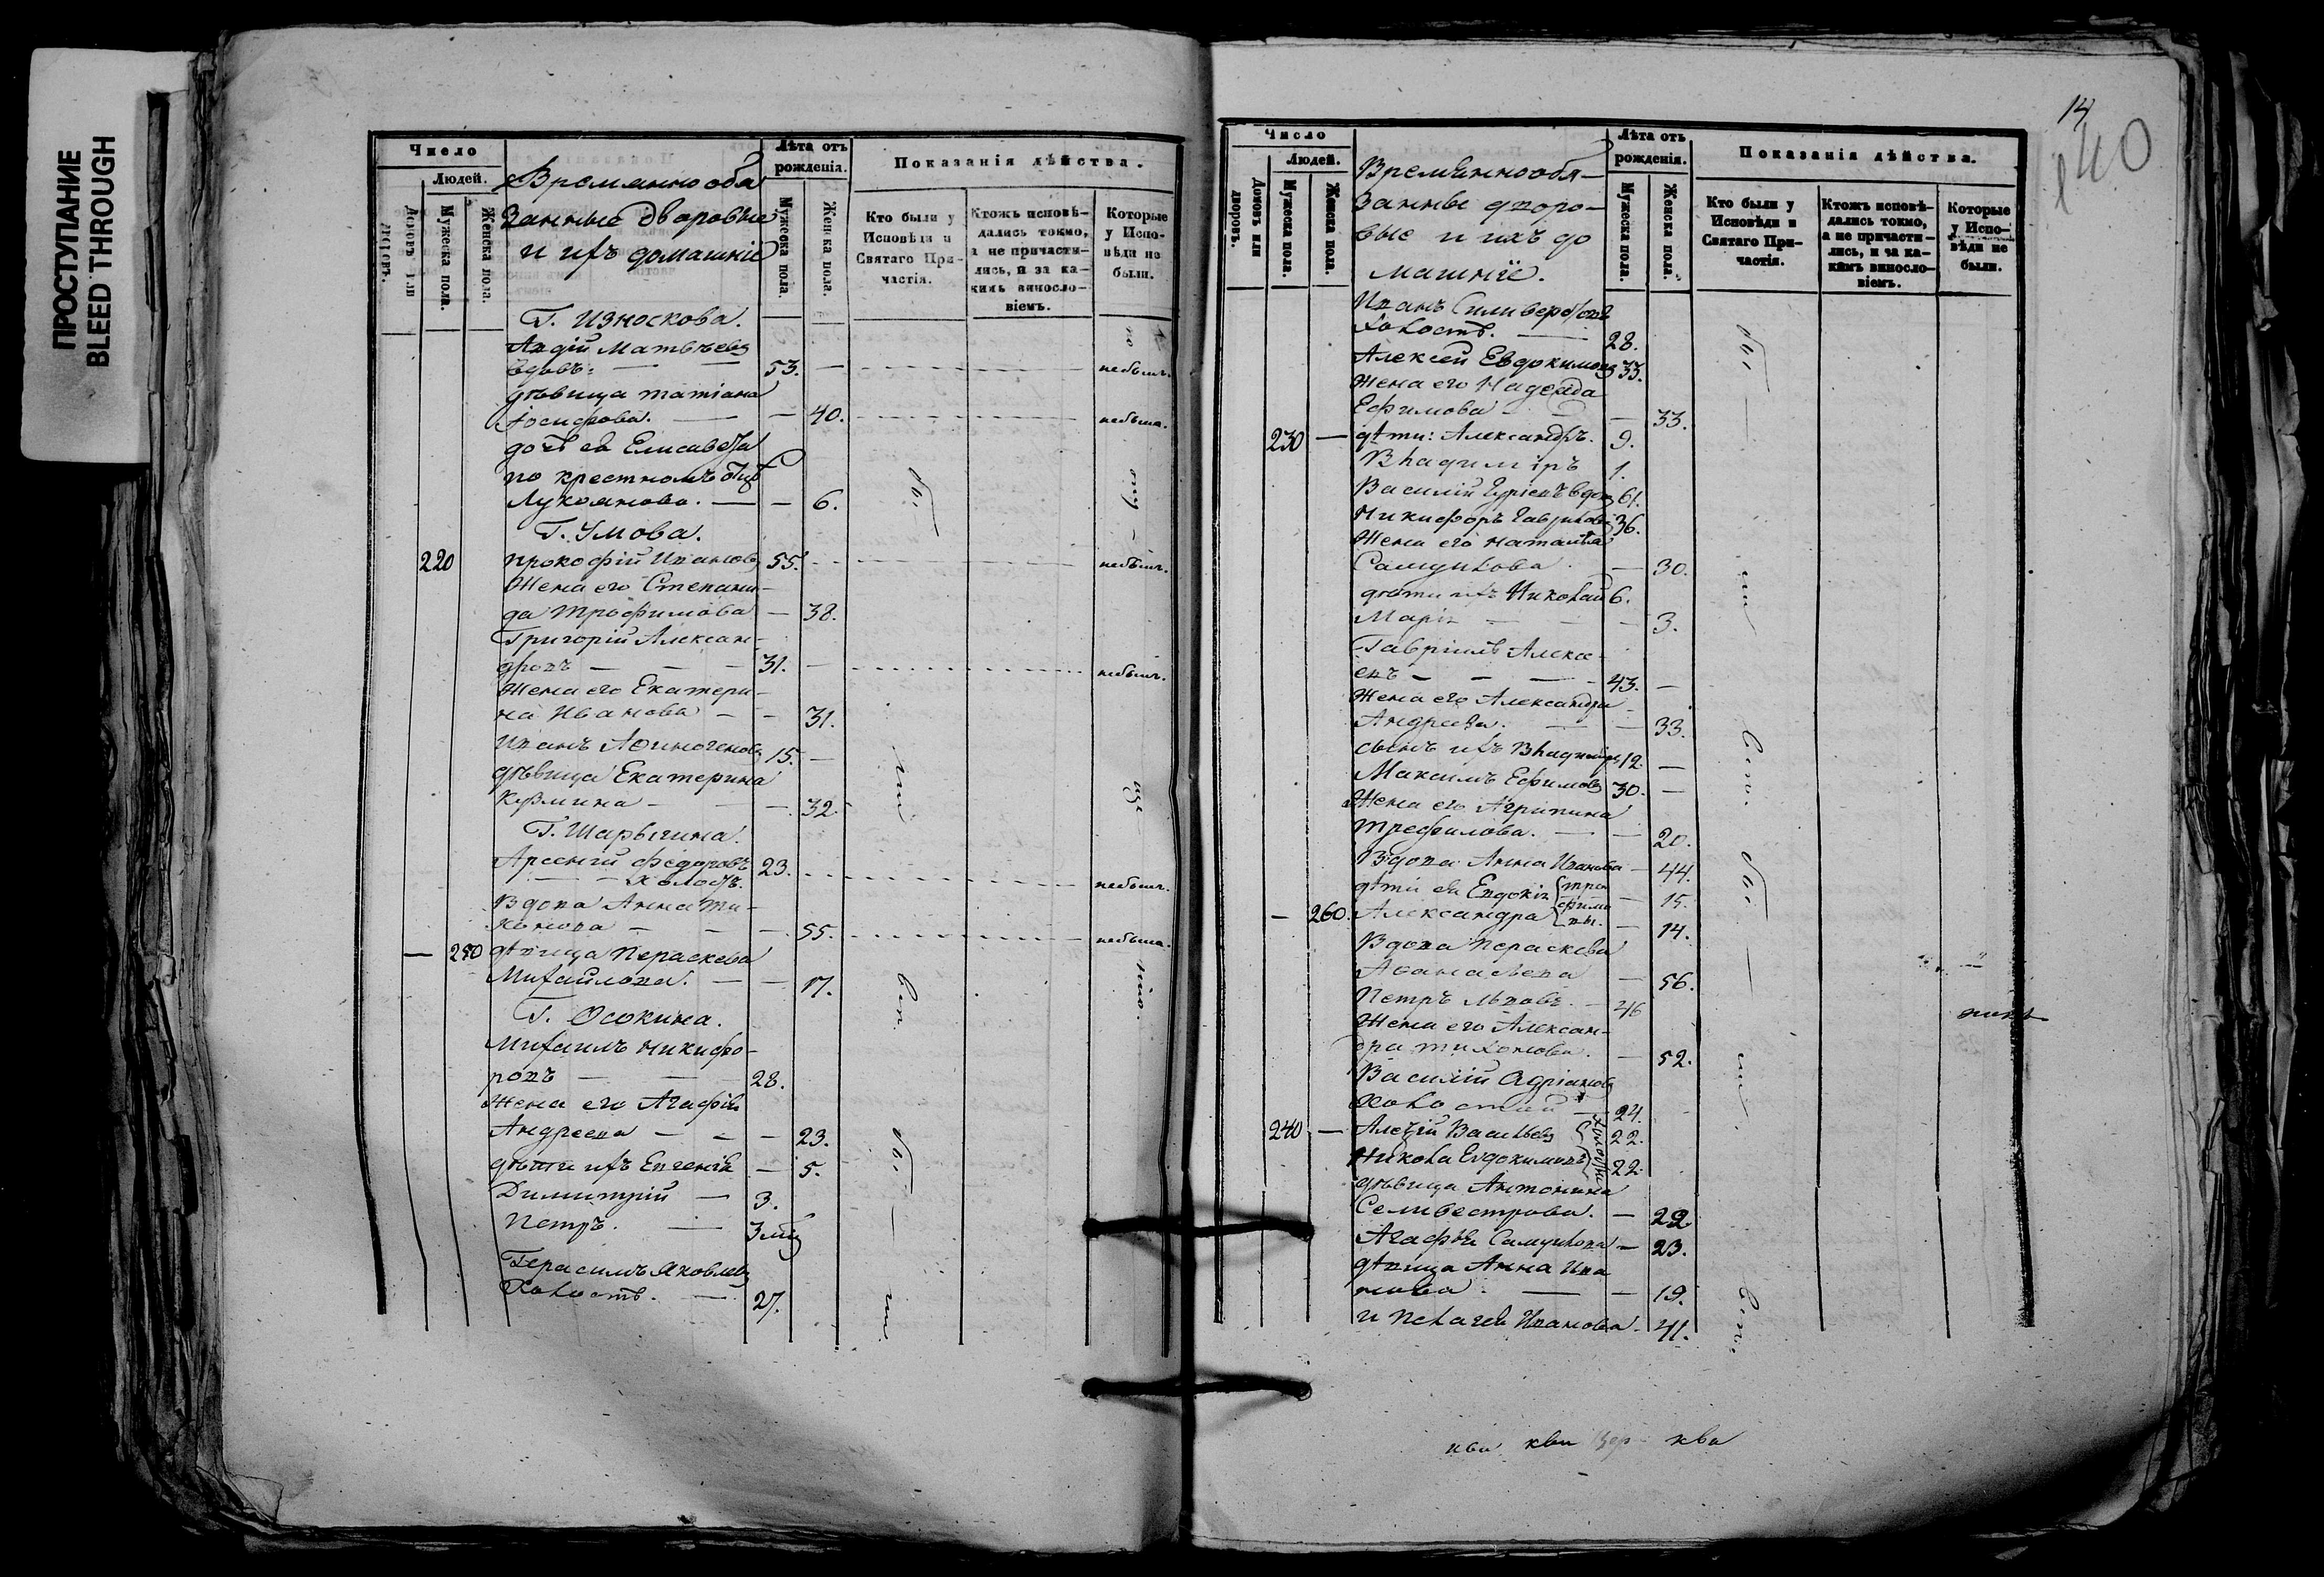 ПРОСТУПАНИЕ
BLEED THROUGH
Число
Людей.
Домовъ или дворовъ.
Мужеска пола.
Женска пола.
Временнообя
занные дворовые
и ихъ домашніе
Лѣта отъ рожденія.
Мужеска пола.
Женска пола.
Показанія дѣйства.
Кто были у Исповѣди и Святаго Причастія.
Ктожъ исповѣдались токмо, а не причастились, и за какимъ винословіемъ.
Которые у Исповѣди не были.
Г. Износкова.
Авдій Матвѣевъ
вдовъ: — — 53. — небылъ.
дѣвица татіана
Іосифова. — — 40. небыла.
дочь ея Елисавета
по крестномъ отцѣ
Лукоянова. — — 6.
Г. Умова.
220 прокофій Ивановъ 55. небылъ.
Жена его Степани-
да Трофимова — 38.
Григорій Алексан-
дровъ — — — 31. — небылъ.
Жена его Екатери-
на Иванова — — 31.
Иванъ Афиногеновъ 15. —
дѣвица Екатерина
Кузмина — — — 32.
Г. Шарыгина.
Арсеній Федоровъ 23.
— — Холостъ. небылъ.
Вдова Анна Ти-
хонова — — — 55. небыла.
— 250 дѣвица Параскева
Михайлова. — — 17.
Г. Осокина.
Михаилъ Никифо-
ровъ — — 28.
Жена его Агафія
Андреева — — — 23.
дѣти ихъ Евгенія — 5.
Димитрій — 3.
Петръ. — 3 мѣс
Герасимъ Яковлевъ
Холостъ. — 27.
14
40
Число
Людей.
Домовъ или дворовъ.
Мужеска пола.
Женска пола.
Временнообя-
занные дворо-
вые и ихъ до
машніе.
Лѣта отъ рожденія.
Мужеска пола.
Женска пола.
Показанія дѣйства.
Кто были у Исповѣди и Святаго Причастія.
Ктожъ исповѣдались токмо, а не причастились, и за какимъ винословіемъ.
Которые у Исповѣди не были.
Иванъ Силиверстовъ
Холостъ. — 28.
Алексей Евдокимовъ 33.
Жена его Надежда
Ефимова — — — 33.
230 — дѣти: Александръ. 9.
Владиміръ 1.
Василій Гурьевъ вдовъ 61.
Никифоръ Гавриловъ 36.
Жена его Наталья
Самуилова. — 30.
дѣти ихъ Николай 6.
Марія — — — 3.
Гавріилъ Алекс-
евъ — — — 43. —
Жена его Александра
Андреева. — — 33.
сынъ ихъ Владиміръ 12. —
Максимъ Ефимовъ 30. —
Жена его Агрипина
Трефилова. — — 20.
Вдова Анна Иванова — 44.
дѣти ея Евдокія — 15.
Трофимовы.
— 260. Александра — 14.
Вдова Параскева
Афанасьева — 56.
Петръ Львовъ. — 46
Жена его Алексан-
дра тихонова. — 52.
Василій Адріановъ
Холостой — 24.
240 — Алексій Васильевъ 22.
Холосты
Никола Евдокимовъ 22.
дѣвица Антонина
Селивестрова. — 22.
Агафья Самуилова — 23.
дѣвица Анна Ива
нова. — — 19.
и Пелагея Иванова. 41.